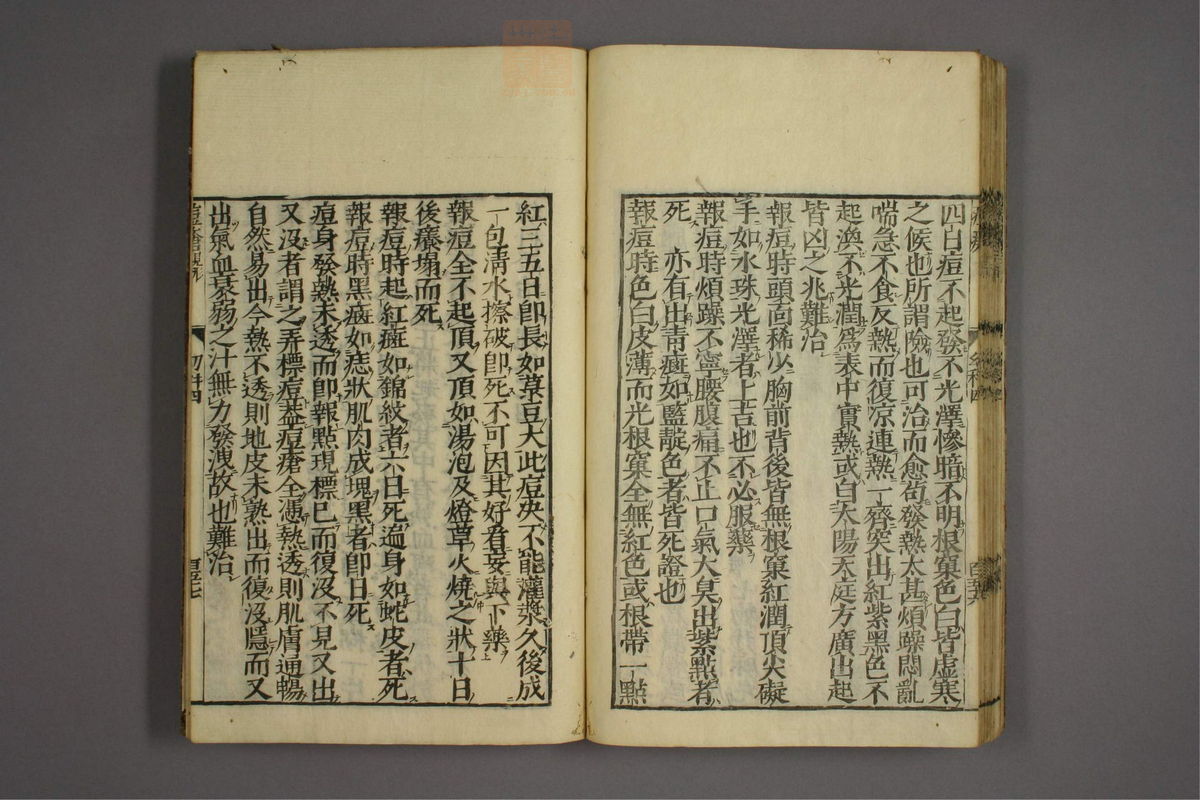 四白痘不起發不光澤慘暗不明根窠色白皆虛寒
之候也所謂險也可治而愈茍發熱太甚煩躁悶亂
喘急不食反熱而復凉連熱一齊突出紅紫黑色不
起渙不光潤爲表中實熱或白太陽天庭方廣出起
皆凶之兆難治
報痘時頭面稀少胸前背後皆無根窠紅潤頂尖礙
手如水珠光澤者上吉也不必服藥
報痘時煩躁不寧腰腹痛不止口氣大臭出紫點者
死　亦有出青癍如藍靛色者皆死證也
報痘時色白皮薄而光根窠全無紅色或根帶一點
紅三五日卽長如菉豆大此痘决不能灌漿久後成
一包清水擦破卽死不可因其好看妄與下藥
報痘全不起頂又頂如湯泡及燈草火燒之狀十日
後癢塌而死
報痘時起紅癍如錦紋者六日死遍身如蚘皮者死
報痘時黑癍如痣狀肌肉成塊黑者卽日死
痘身發熱未透而卽報點現標已而復沒不見又出
又沒者謂之弄標痘葢痘瘡全憑熱透則肌膚通暢
自然易出今熱不透則地皮未熟出而復沒隱而又
出氣血衰弱之汁無力發洩故也難治
幼科四